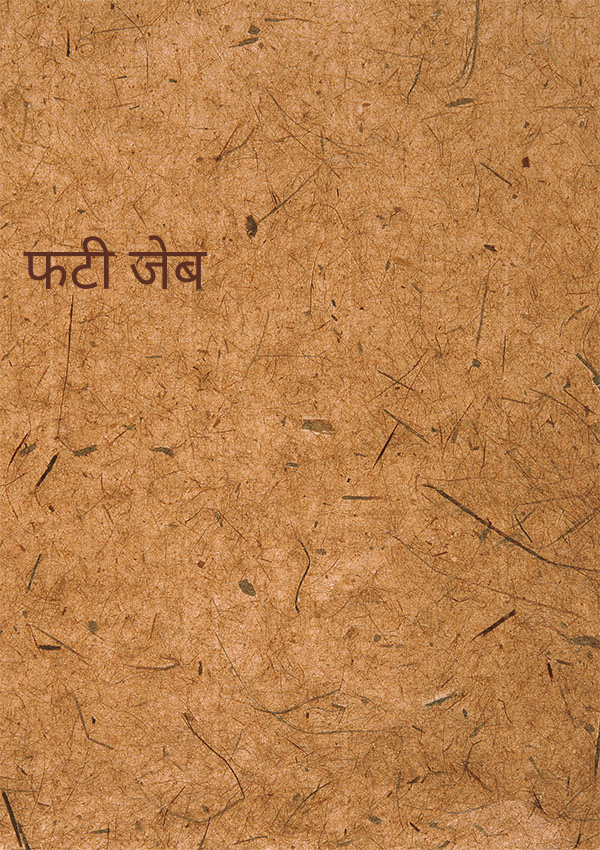 फटी जेब